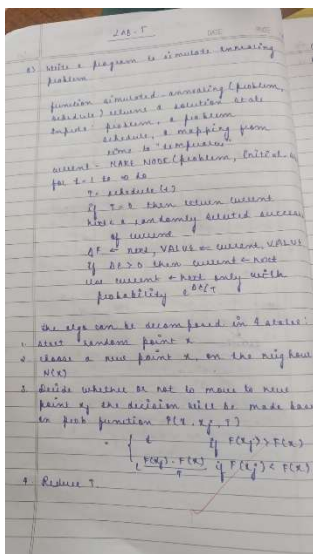 LAB-5
Q) Write a program to simulate annealing
problem
function simulated-annealing (problem,
schedule) returns a solution state
inputs: problem, a problem
schedule, a mapping from
time to "temperature"
current = MAKE NODE (problem, initial-
for t=1 to ∞ do
T = schedule (t)
if T=0 then return current
next = a randomly selected success
of current
ΔE ← next, VALUE - current, VALUE
if ΔE > 0 then current ← next
else current ← next only with
probability e^ΔE/T
the algo can be decomposed in 4 states:
1. start random point x
2. choose a new point xj on the neighbou
N(x)
3. Decide whether or not to move to new
point xj the decision will be made bas
on prob function P(x, xj, T)
= { 1 if F(xj) > F(x)
{ F(xj) - F(x) if F(xj) < F(x)
T
4. Reduce T.